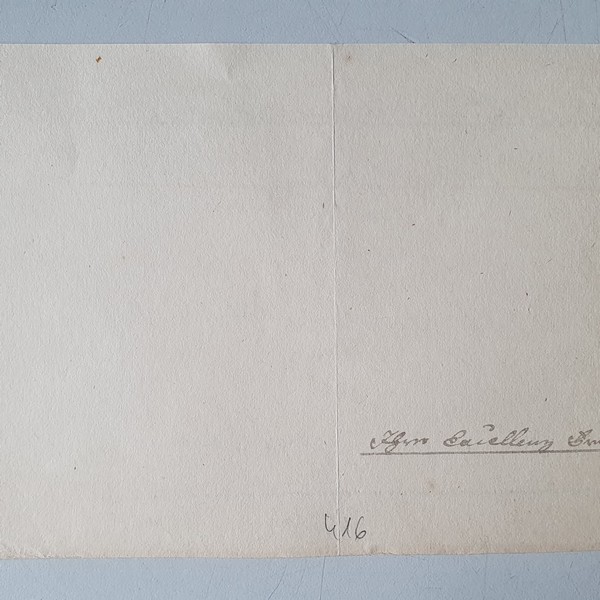 Ihre Excellenz
416